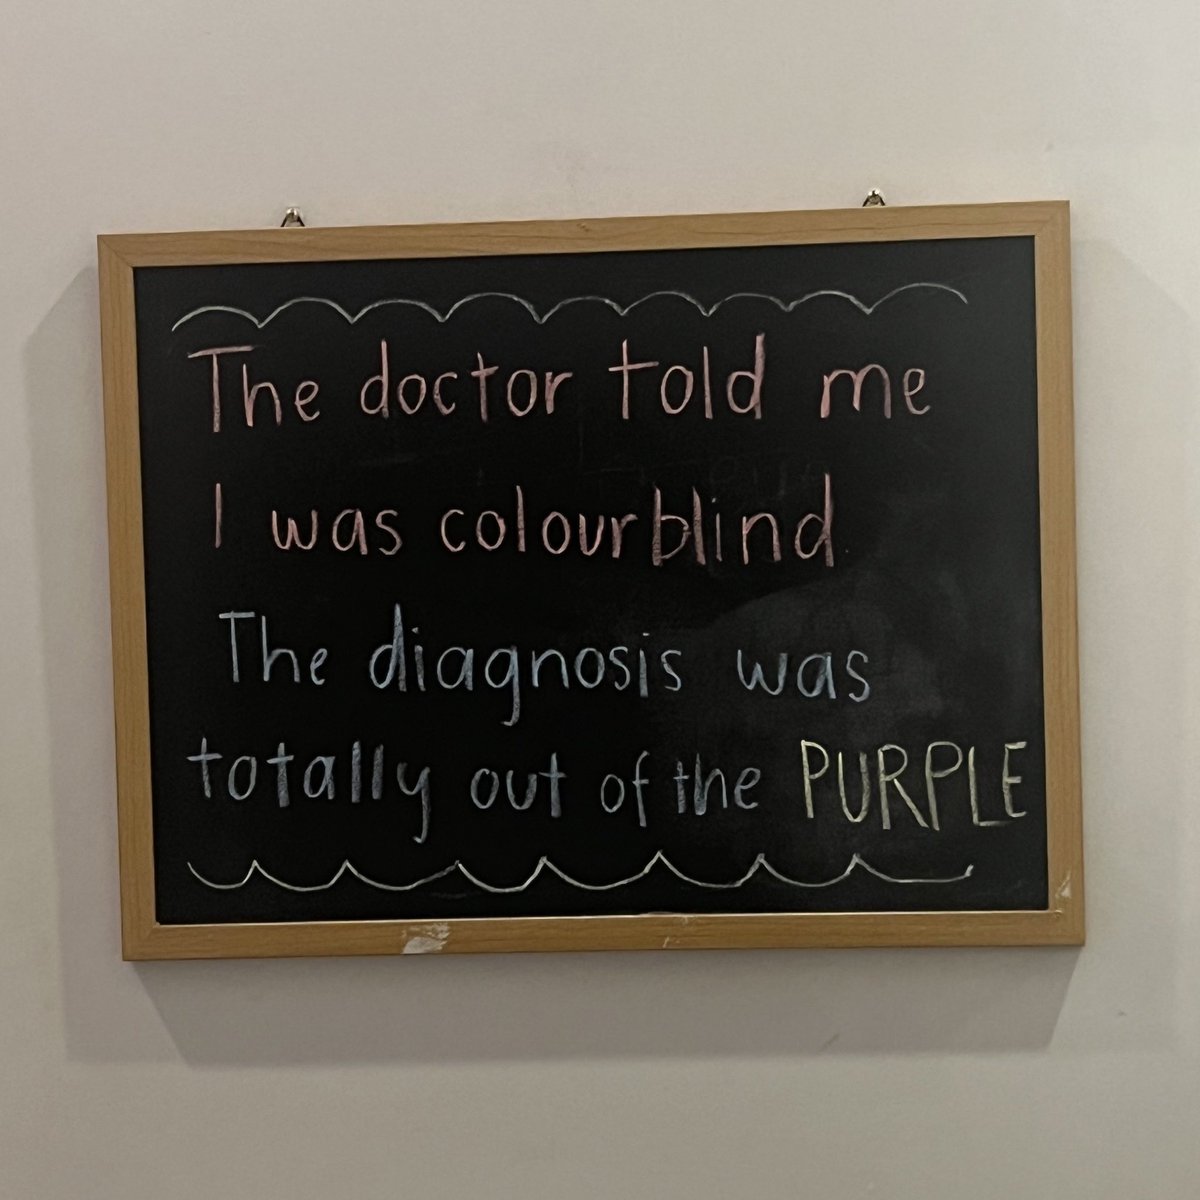 The doctor told me
I was colourblind
The diagnosis was
totally out of the PURPLE